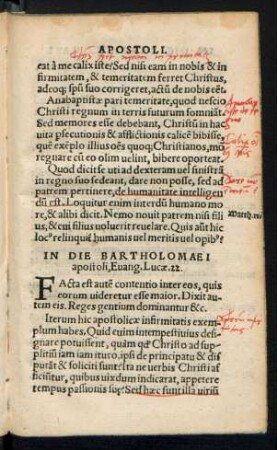 APOSTOLI.
eat à me calix iste? Sed nisi eam in nobis & in
firmitatem, & temeritatem ferret Christus,
adeoq; spũ suo corrigeret, actũ de nobis eēt.
Anabaptistæ pari temeritate, quod nescio
Christi regnum in terris futurum somniãt.
Sed memores esse debebant, Christum in hac
vita psecutionis & afflictionis calicē bibisse,
quē exēplo illius oēs quoq; Christianos, mo
regnare cũ eo olim uelint, bibere oporteat.
Quod dicit se uti ad dexteram uel sinistrã
in regno suo sedeant, dare non posse, sed ad
patrem pertinere, de humanitate intelligen
dũ est. Loquitur enim interdũ humano mo
re, & alibi dicit. Nemo novit patrem nisi fili
us, & cui filius uoluerit reuelare. Quis aũt hic
loc⁹ relinquit humanis uel meritis uel opib⁹?
Matth.
IN DIE BARTHOLOMAEI
apostoli, Euang. Lucæ. 22.
FActa est autē contentio inter eos, quis
eorum uideretur esse maior. Dixit au
tem eis. Reges gentium dominantur &c.
Iterum hic apostolicæ infirmitatis exem
plum habes. Quid enim intempestiuius desi
gnare potuissent, quàm qđ Christo ad sup
plitiũ iam iam ituro, ipsi de principatu & dis
putãt & soliciti sunt? sta ne verbis Christi af
ficiũtur, quibus uixdum indicarat, appetere
tempus passionis suę? Sed hæc suntilla uiriũ